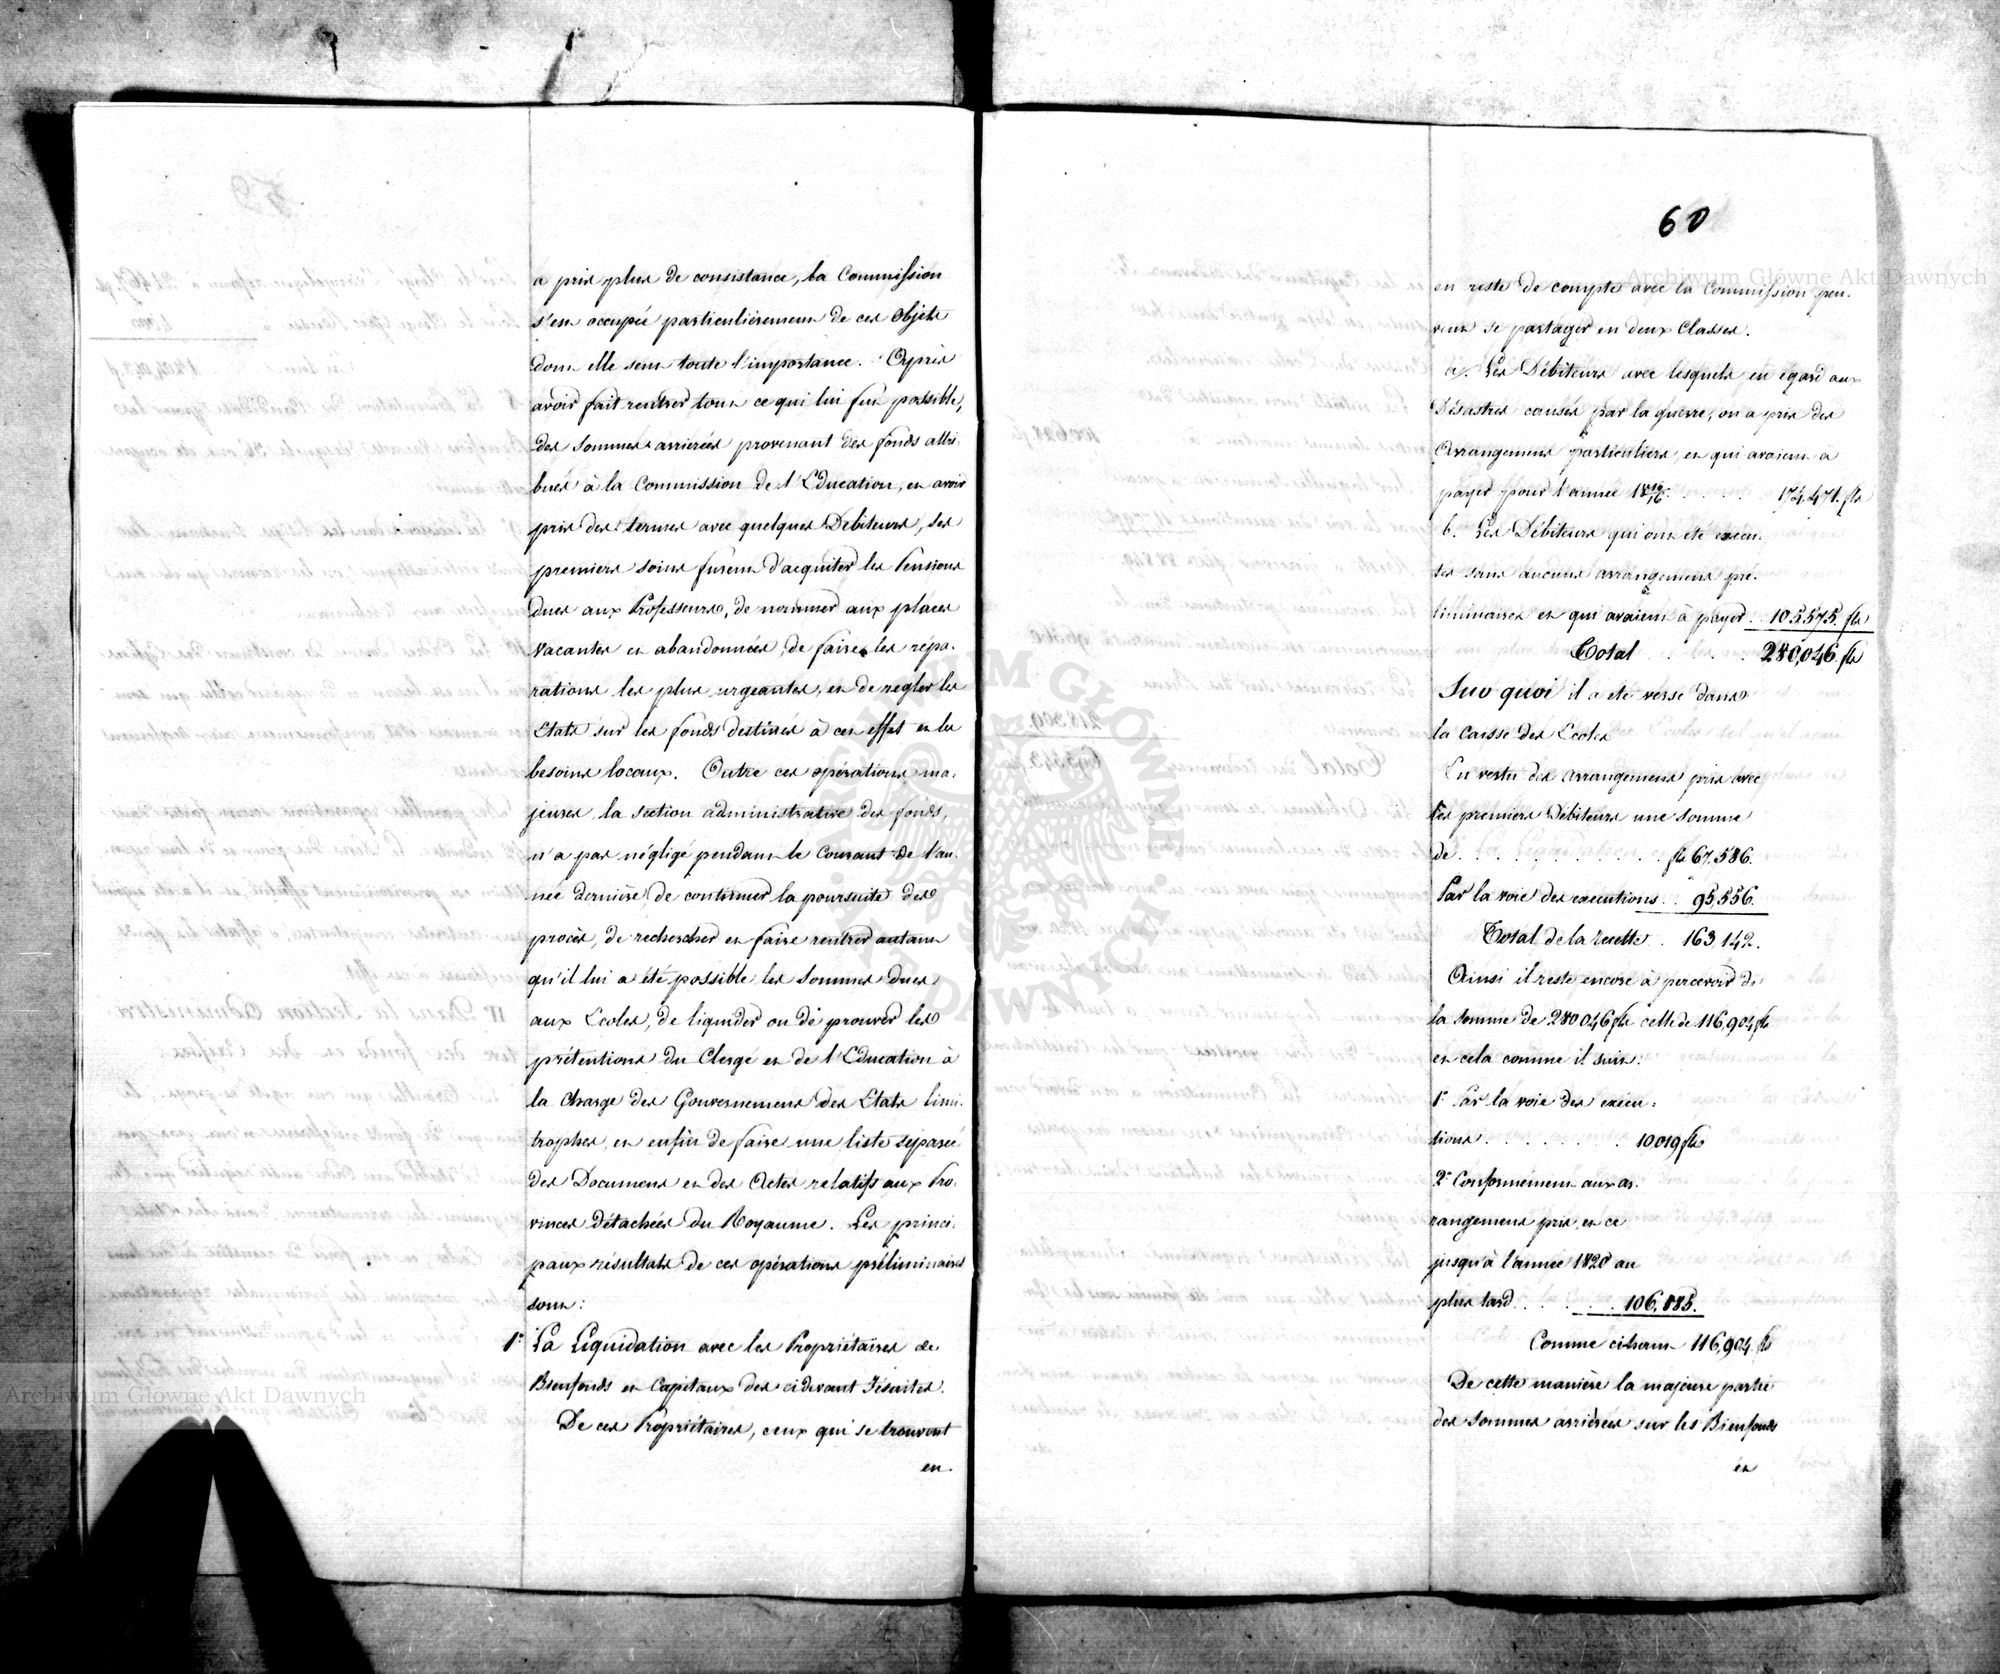 a pris plus de consistance, la Commission
s'est occupée particulièrement de ces Objets
dont elle sent toute l'importance. Après
avoir fait rentrer tout ce qui lui fut possible,
des Sommes arrierées provenant des fonds attri-
bués à la Commission de l'Education, et avoir
pris des termes avec quelques Débiteurs, ses
premiers soins furent d'acquiter les Pensions
dues aux Professeurs, de nommer aux places
vacantes et abandonnées, de faire les répa-
rations les plus urgeantes, et de regler les
Etats sur les fonds destinés à cet effet et les
besoins locaux. Outre ces opérations ma-
jeures, la section administrative des fonds,
n'a pas négligé pendant le Courant de l'an-
née dernière de continuer la poursuite des
procès, de rechercher et faire rentrer autant
qu'il lui a été possible les Sommes dues
aux Ecoles, de liquider ou de prouver les
prétentions du Clergé et de l'Education à
la Charge des Gouvernemens des Etats limi-
trophes, et enfin de faire une liste séparée
des Documens et des Actes relatifs aux Pro-
vinces détachées du Royaume. Les princi-
paux résultats de ces opérations préliminaires
sont:
1° La Liquidation avec les Propriétaires de
Bienfonds et Capitaux des cidevant Jésuites.
De ces Propriétaires, ceux qui se trouvent
en
60
en reste de compte avec la Commission peu-
vent se partager en deux Classes.
a. Les Débiteurs avec lesquels eu egard aux
Désastres causés par la guerre, on a pris des
Arrangemens particuliers, et qui avaient à
payer pour l'année 18 15/16 . . . . . 174.471. fls
b. Les Débiteurs qui ont été exécu-
tés sans aucuns arrangemens pré-
liminaires et qui avaient à payer . . 105.575. fls
Total . . . . . 280,046. fls
Sur quoi il a été versé dans
la caisse des Ecoles
En vertu des arrangemens pris avec
les premiers Débiteurs une somme
de . . . . . . . . . . . . fls 67,586.
Par la voie des executions . . 95,556.
Total de la recette . 163,142.
Ainsi il reste encore à percevoir de
la somme de 280046 fls celle de 116,904 fls
et cela comme il suit:
1° Par la voie des exécu-
tions . . . . . . . . 10019 fls
2° Conformément aux ar-
rangemens pris, et ce
jusqu'à l'année 1820 au
plus tard . . . . . . 106.885.
Comme cidessus 116,904. fls
De cette manière la majeure partie
des sommes arriérées sur les Bienfonds
et
Archiwum Główne Akt Dawnych
Archiwum Główne Akt Dawnych
ARCHIWUM GŁÓWNE
AKT DAWNYCH